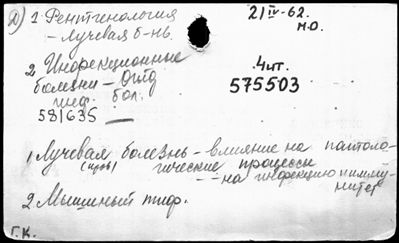 Д) 1. Рентгенология
– лучевая б-нь.
21/IV-62.
М.О.
2. Инфекционные
болезни – Отд
инф. бол.
581635 —
4чт.
575503
1. Лучевая болезнь – влияние на патоло-
гические процессы
– на инфекцию и имму-
нитет
2. Мышиный тиф.
Г.К.